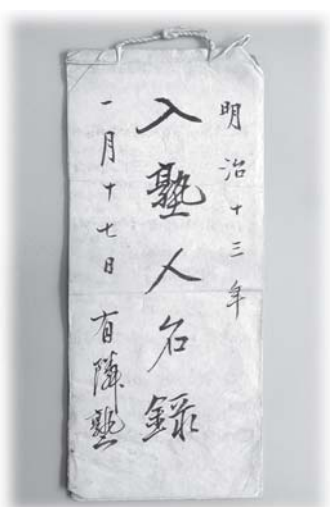 明治十三年
入塾人名録
一月十七日 有隣塾